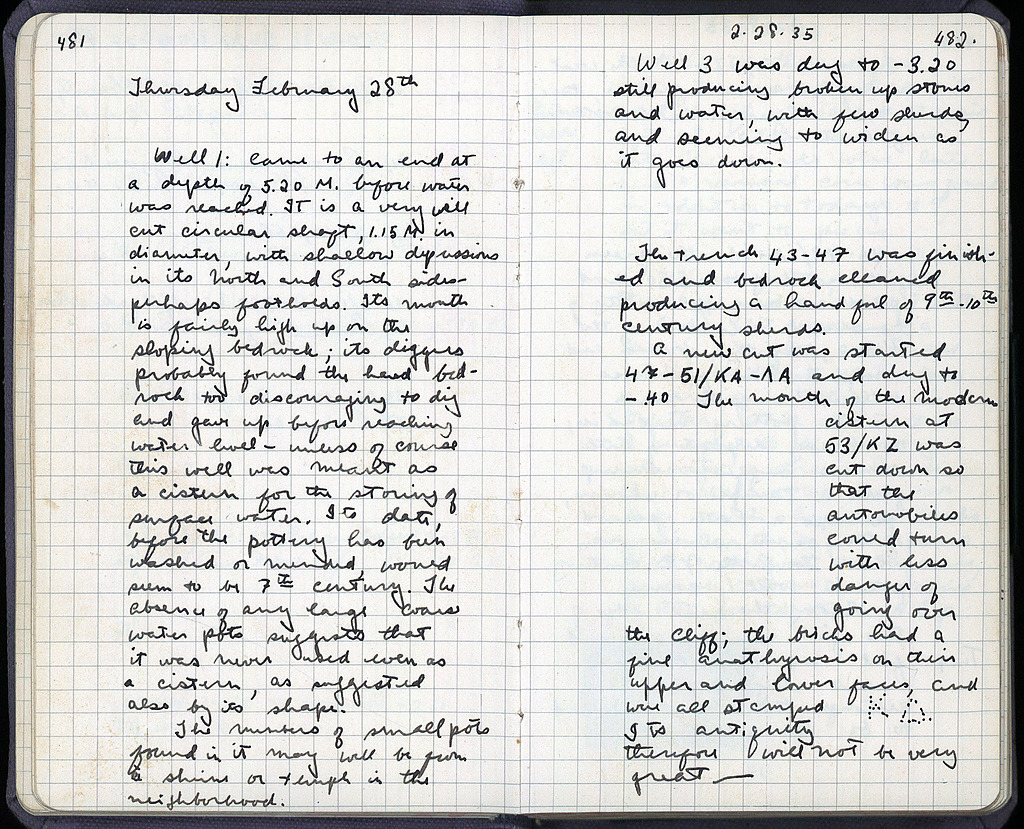 481
Thursday February 28th
Well 1: Came to an end at
a depth of 5.20 M. before water
was reached. It is a very well
cut circular shaft, 1.15 M. in
diameter, with shallow depressions
in its North and South sides -
perhaps footholds. Its mouth
is fairly high up on the
sloping bedrock; its diggers
probably found the hard bed-
rock too discouraging to dig
and gave up before reaching
water level - unless of course
this well was meant as
a cistern for the storing of
surface water. Its date,
before the pottery has been
washed or mended, would
seem to be 7th century. The
absence of any large coarse
water pots suggests that
it was never used even as
a cistern, as suggested
also by its shape.
The numbers of small pots
found in it may well be from
a shrine or temple in the
neighborhood.
2.28.35
482.
Well 3 was dug to -3.20
still producing broken up stones
and water, with few sherds,
and seeming to widen as
it goes down.
The trench 43-47 was finish-
ed and bedrock cleaned
producing a handful of 9th-10th
century sherds.
A new cut was started
47-51/ΚΑ-ΛΑ and dug to
-.40 The mouth of the modern
cistern at
53/ΚΖ was
cut down so
that the
automobiles
could turn
with less
danger of
going over
the cliff; the bricks had a
fine anathyrosis on their
upper and lower faces, and
were all stamped Κ Δ.
Its antiquity
therefore will not be very
great —